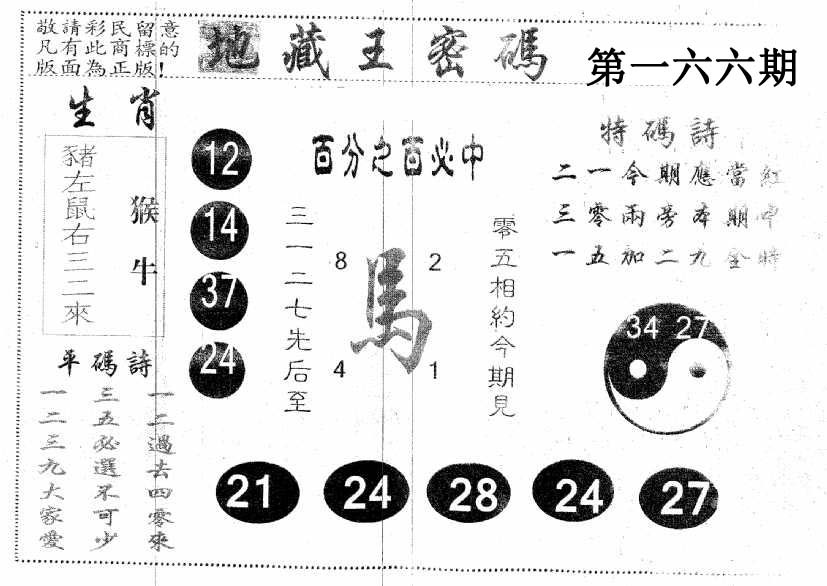 敬請彩民留意
凡有此商標的
版面為正版!
地藏王密碼
第一六六期
生肖
豬左鼠右三二來
猴牛
平碼詩
一二過去四零來
三五必選不可少
一二三九大家愛
12
14
37
24
百分之百必中
三一二七先后至
零五相約今期見
馬
8
2
4
1
特碼詩
二一今期應當紅
三零兩旁本期中
一五加二九全特
34 27
21
24
28
24
27